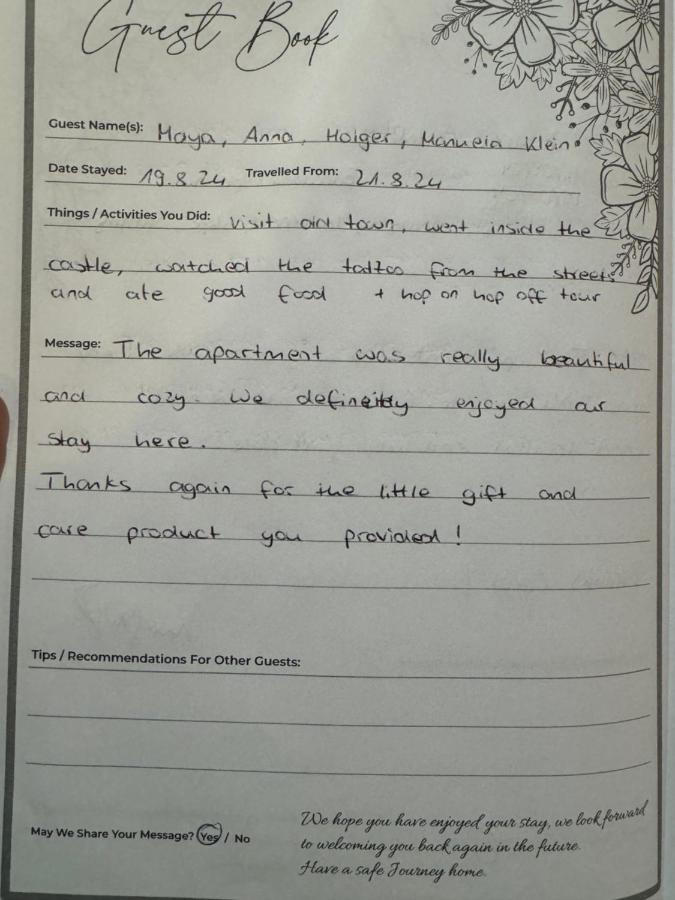 Guest Book
Guest Name(s): Maya, Anna, Holger, Manuela Klein
Date Stayed: 19.8.24 Travelled From: 21.8.24
Things / Activities You Did: Visit old town, went inside the
castle, watched the tattoo from the streets
and ate good food + hop on hop off tour
Message: The apartment was really beautiful
and cozy. We definitely enjoyed our
stay here.
Thanks again for the little gift and
care product you provided!
Tips / Recommendations For Other Guests:
May We Share Your Message? Yes / No
We hope you have enjoyed your stay, we look forward
to welcoming you back again in the future.
Have a safe Journey home.